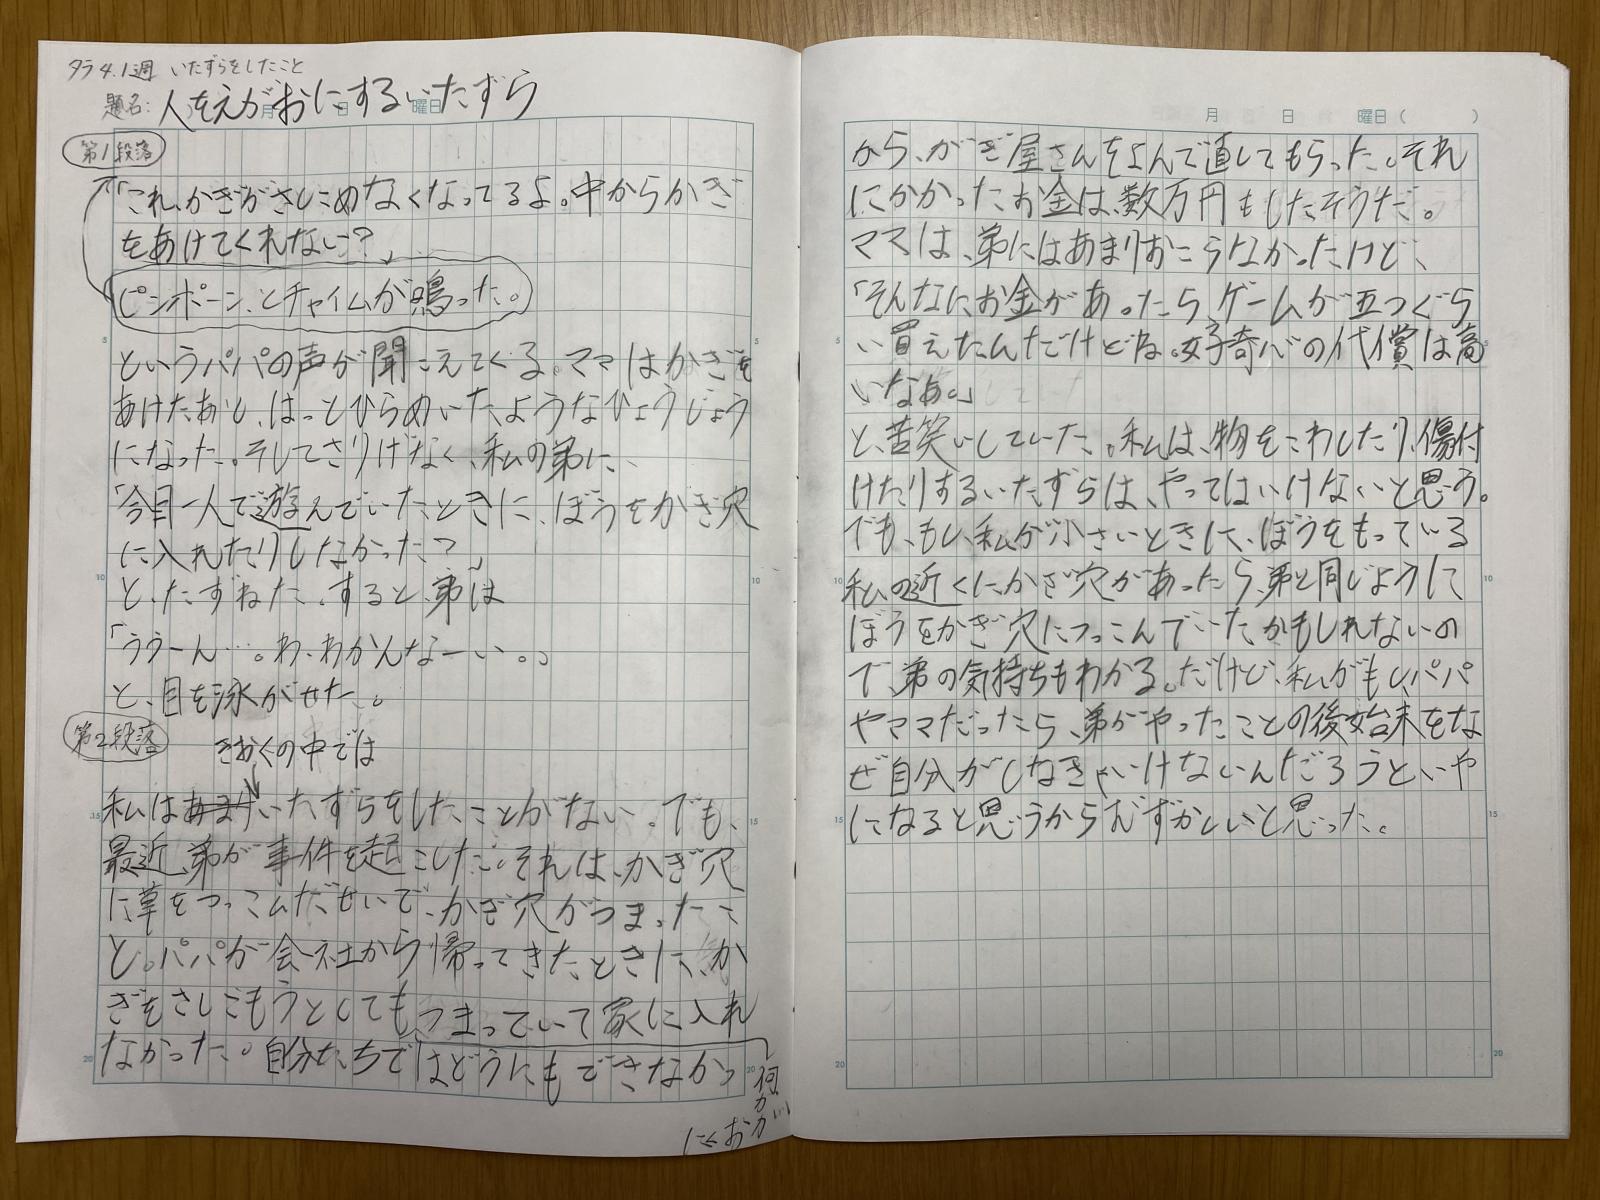 タラ4.1週 いたずらをしたこと
題名:人をえがおにするいたずら
月 日 曜日
第1段落
「これ、かぎがさしこめなくなってるよ。中からかぎ
をあけてくれない?」
ピンポーン、とチャイムが鳴った。
というパパの声が聞こえてくる。ママはかぎを
あけたあと、はっとひらめいたようなひょうじょう
になった。そしてさりげなく、私の弟に、
「今日一人で遊んでいたときに、ぼうをかぎ穴
に入れたりしなかった?」
と、たずねた。すると、弟は
「ううーん…。わ、わかんなーい。」
と、目を泳がせた。
第2段落
きおくの中では
私はあまりいたずらをしたことがない。でも、
最近、弟が事件を起こした。それは、かぎ穴
に草をつっこんだせいで、かぎ穴がつまったこ
と。パパが会社から帰ってきたときに、か
ぎをさしこもうとしても、つまっていて家に入れ
なかった。自分たちではどうにもできなかっ
何かが…
にくおが
5
10
15
20
月 日 曜日( )
から、かぎ屋さんをよんで直してもらった。それ
にかかったお金は、数万円もしたそうだ。
ママは、弟にはあまりおこらなかったけど、
「そんなにお金があったら、ゲームが五つぐら
い買えたんだけどね。好奇心の代償は高
いなあ。」
と、苦笑いしていた。私は、物をこわしたり、傷付
けたりするいたずらは、やってはいけないと思う。
でも、もし、私が小さいときに、ぼうをもっている
私の近くにかぎ穴があったら、弟と同じように
ぼうをかぎ穴につっこんでいたかもしれないの
で、弟の気持ちもわかる。だけど、私がもし、パパ
やママだったら、弟がやったことの後始末をな
ぜ自分がしなきゃいけないんだろうといや
になると思うからむずかしいと思った。
5
10
15
20